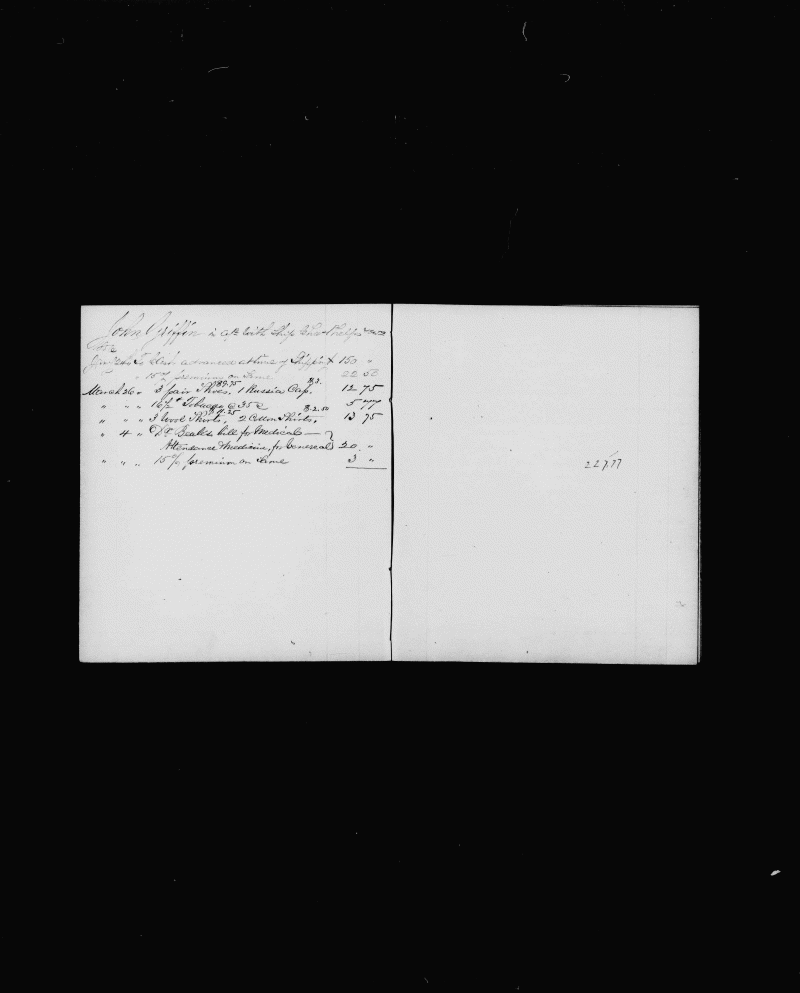 John Griffin in a/c with Ship
To Cash advanced at time of Shipping 150 "
" 15 % premium on Same 22 50
March 26 " 3 pair Shoes, 9.75 1 Russia Cap, $3. 12 75
" " " 16½ Tobacco @ 35c 5 77
" " " 3 Wool Shirts, 11.25 2 Cotton Shirts, $2.50 13 75
" 4 " Dr bill for Medical
Attendance & Medicine, for Venereal 20 "
" " " 15 % premium on Same 3 "
227.77